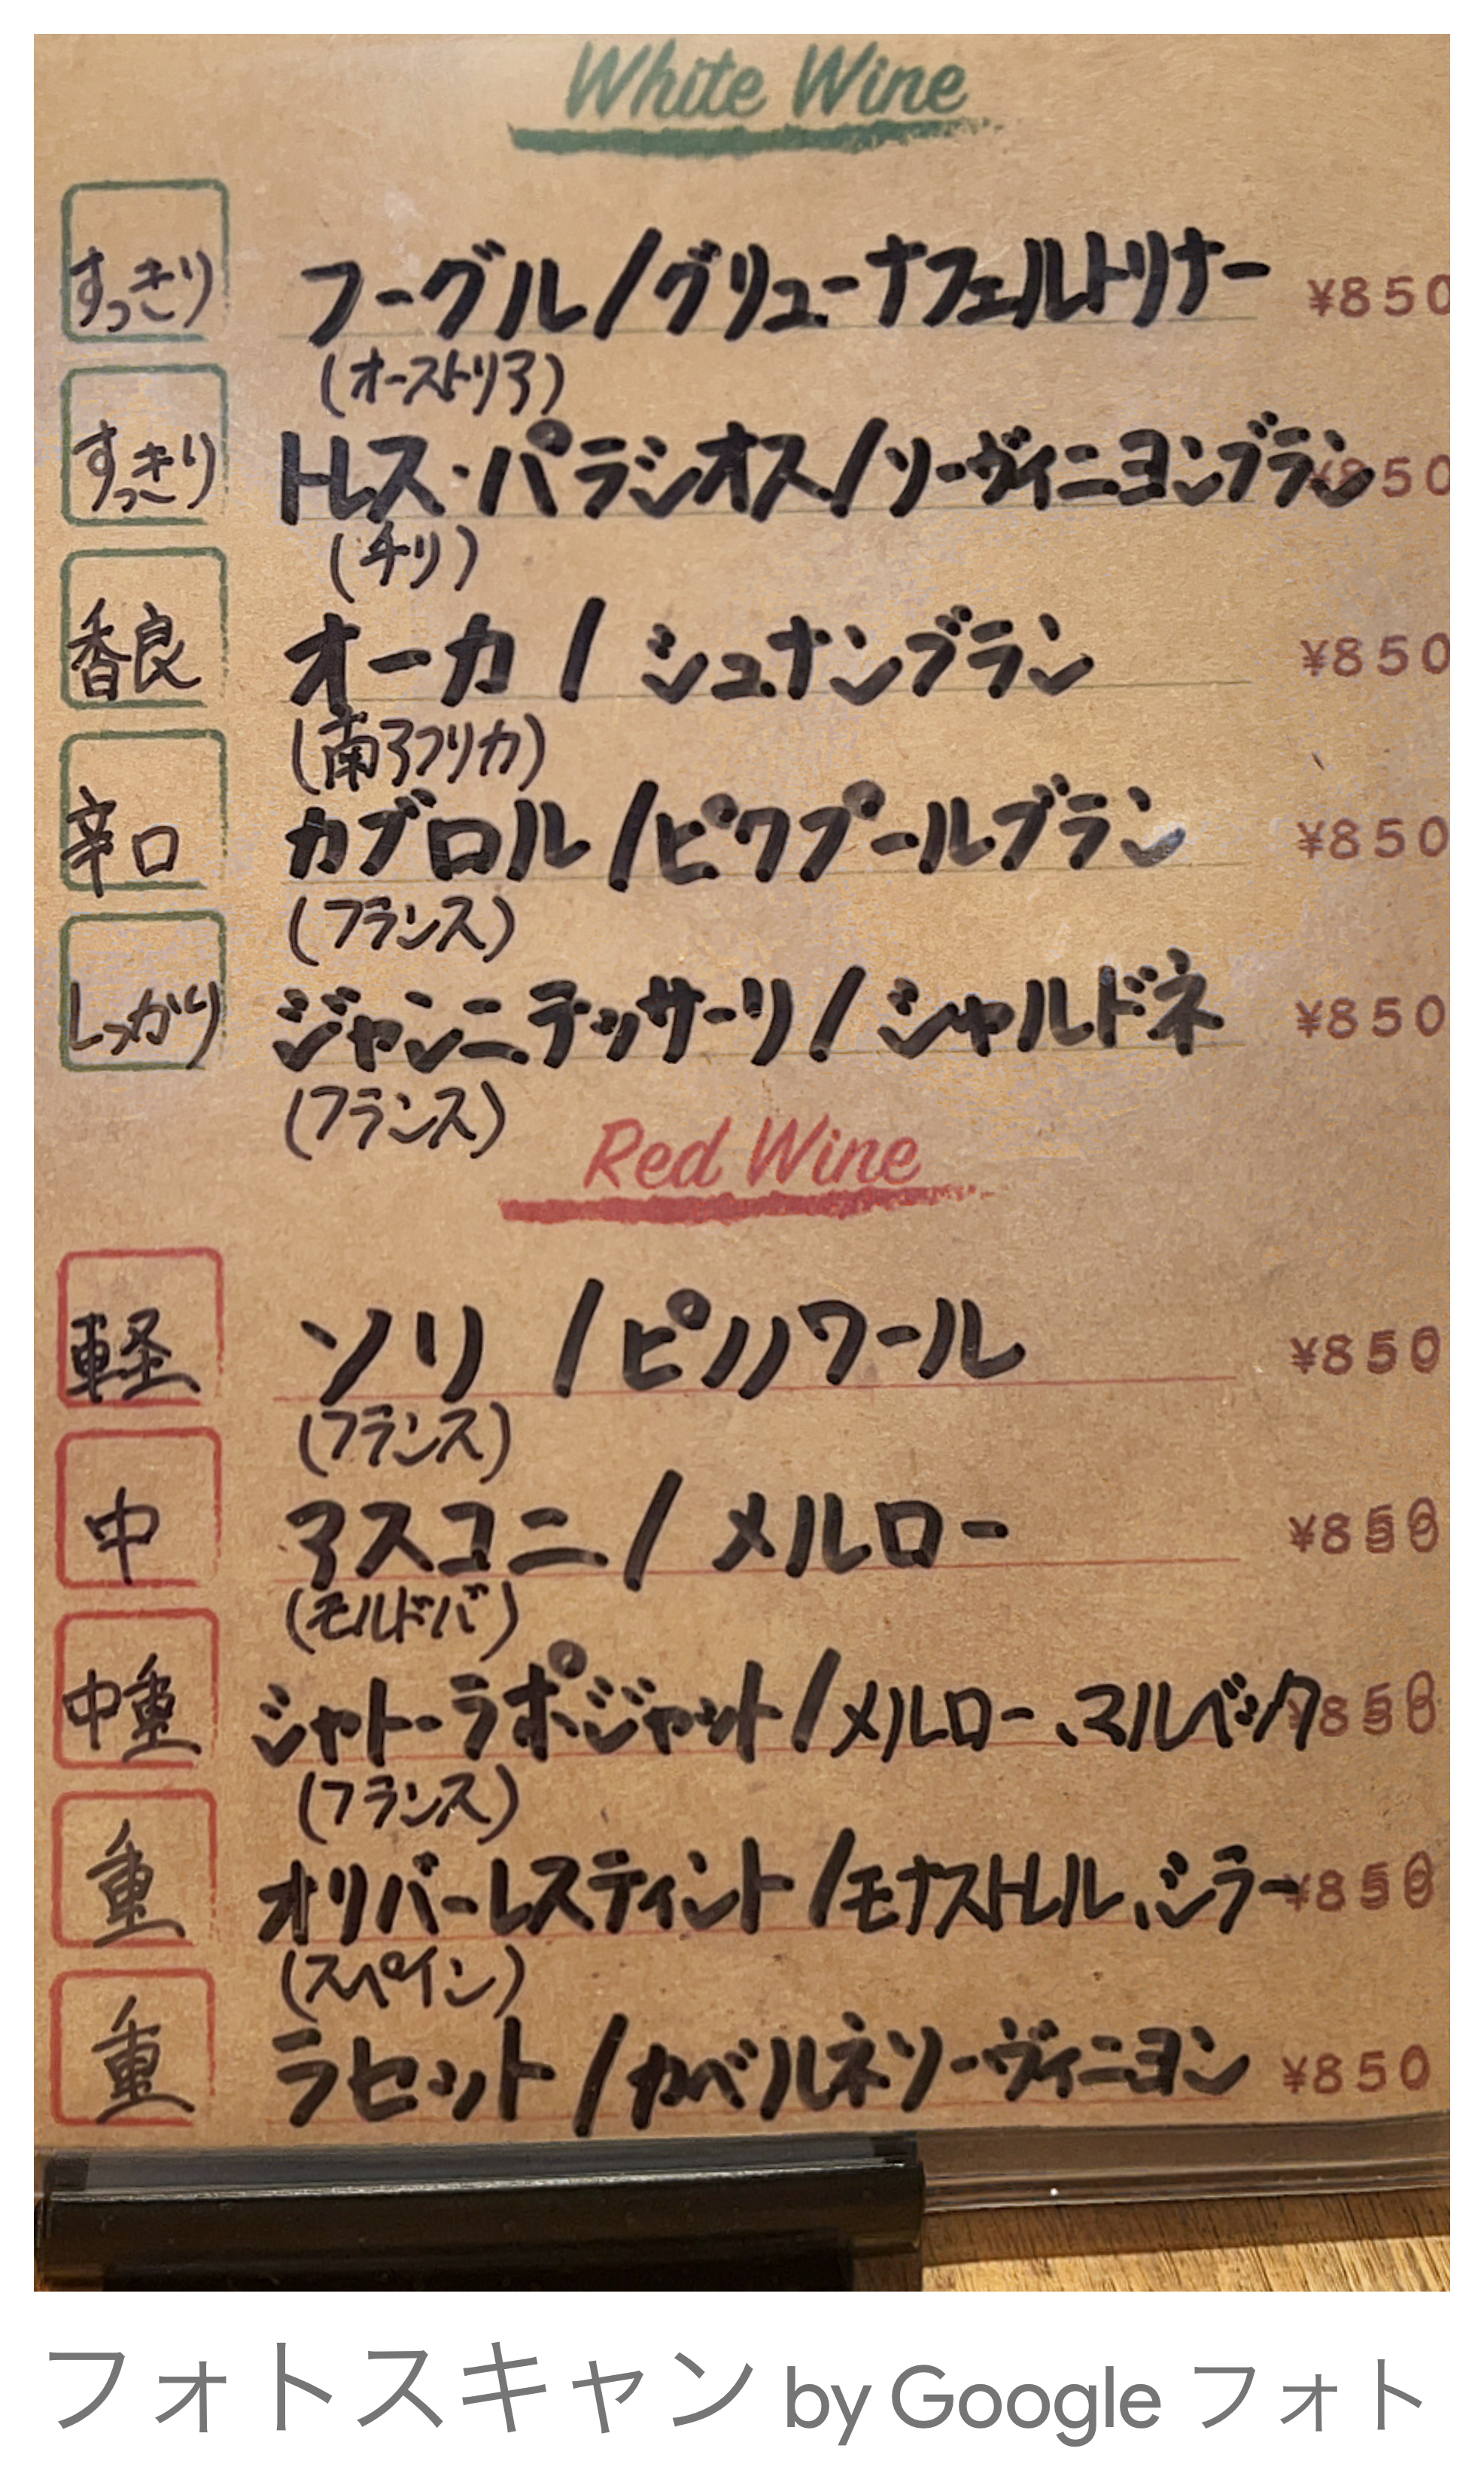 White Wine
すっきり フーグル/グリューナフェルトリナー ¥850
(オーストリア)
すっきり トレス・パラシオス/ソーヴィニヨンブラン ¥850
(チリ)
香良 オーカ / シュナンブラン ¥850
(南アフリカ)
辛口 カブロル/ピクプールブラン ¥850
(フランス)
しっかり ジャンニテッサーリ/シャルドネ ¥850
(フランス)
Red Wine
軽 ソリ /ピノノワール ¥850
(フランス)
中 アスコニ/メルロー ¥850
(モルドバ)
中重 シャトーラポージャット/メルロー、マルベック ¥850
(フランス)
重 オリバーレスティント/モナストレル、シラー ¥850
(スペイン)
重 ラセット/カベルネソーヴィニヨン ¥850
フォトスキャン by Google フォト